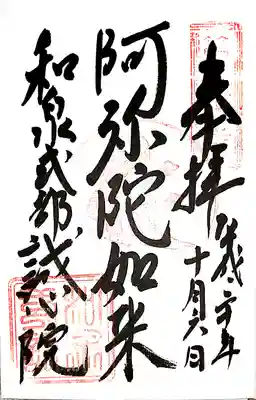 奉拝 平成二十年
十月六日
阿弥陀如来
和泉式部 誠心院